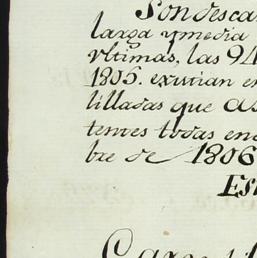 Son desca
larga y media
vltimas, las 94
1805. existian en
lilladas que as
tentes todas en
bre de 1806
Es
Cargo